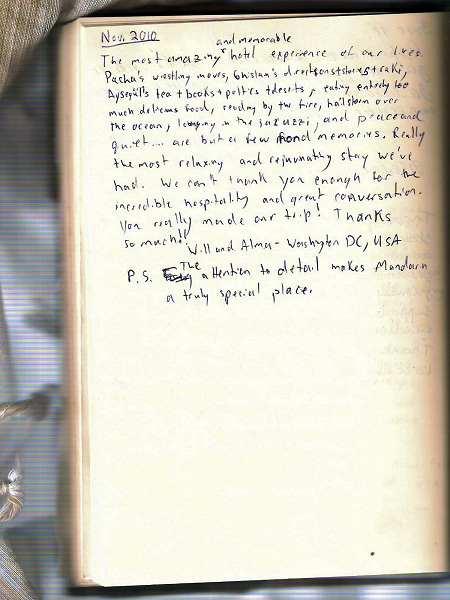 Nov. 2010
and memorable
The most amazing hotel experience of our lives.
Pasha's wrestling moves, Ghislan's directions + stories + raki,
Aysegül's tea + books + politics + desserts, eating entirely too
much delicious food, reading by the fire, hailstorm over
the ocean, lounging in the jacuzzi, and peace and
quiet.... are but a few fond memories. Really
the most relaxing and rejuvinating stay we've
had. We can't thank you enough for the
incredible hospitality and great conversation.
You really made our trip! Thanks
so much!!
Will and Alma - Washington DC, USA
P.S. The attention to detail makes Mandarin
a truly special place.